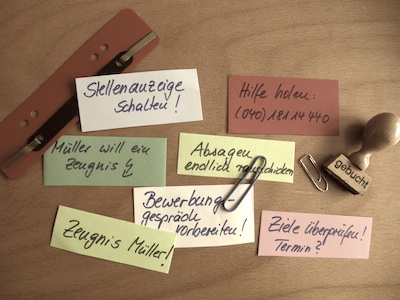 Stellenanzeige
schalten!
Hilfe holen:
(040) 181 14 440
Müller will ein
Zeugnis
Absagen
endlich rausschicken
gebucht
Bewerbungs-
gespräch
vorbereiten!
Zeugnis Müller!
Ziele überprüfen!
Termin?